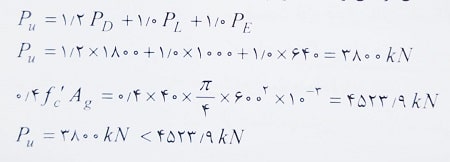 P_u = ۱/۲ P_D + ۱/۰ P_L + ۱/۰ P_E
P_u = ۱/۲ × ۱۸۰۰ + ۱/۰ × ۱۰۰۰ + ۱/۰ × ۶۴۰ = ۳۸۰۰ kN
۰/۴ f_c' A_g = ۰/۴ × ۴۰ × π/۴ × ۶۰۰^۲ × ۱۰^-۳ = ۴۵۲۳/۹ kN
P_u = ۳۸۰۰ kN < ۴۵۲۳/۹ kN